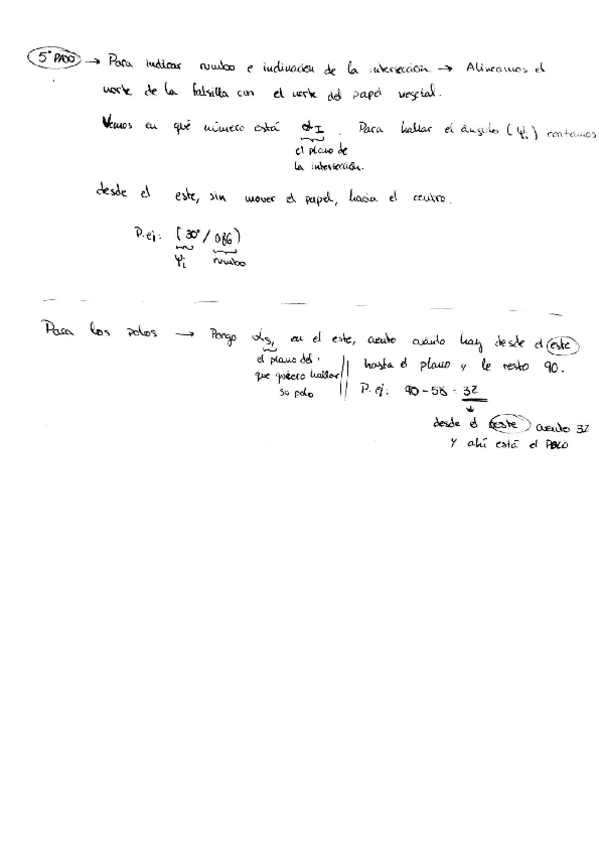 5º PASO → Para indicar rumbo e inclinación de la intersección → Alineamos el
norte de la falsilla con el norte del papel vegetal.
Vemos en qué número está αI. Para hallar el ángulo (ψi) contamos
el plano de
la intersección.
desde el este, sin mover el papel, hacia el centro.
P.ej: (30º/086)
ψi rumbo
Para los polos → Pongo αs, en el este, cuento cuánto hay desde el este
el plano del
que quiero hallar
su polo
hasta el plano y le resto 90.
P.ej: 90-58=32
desde el oeste cuento 32
y ahí está el POLO